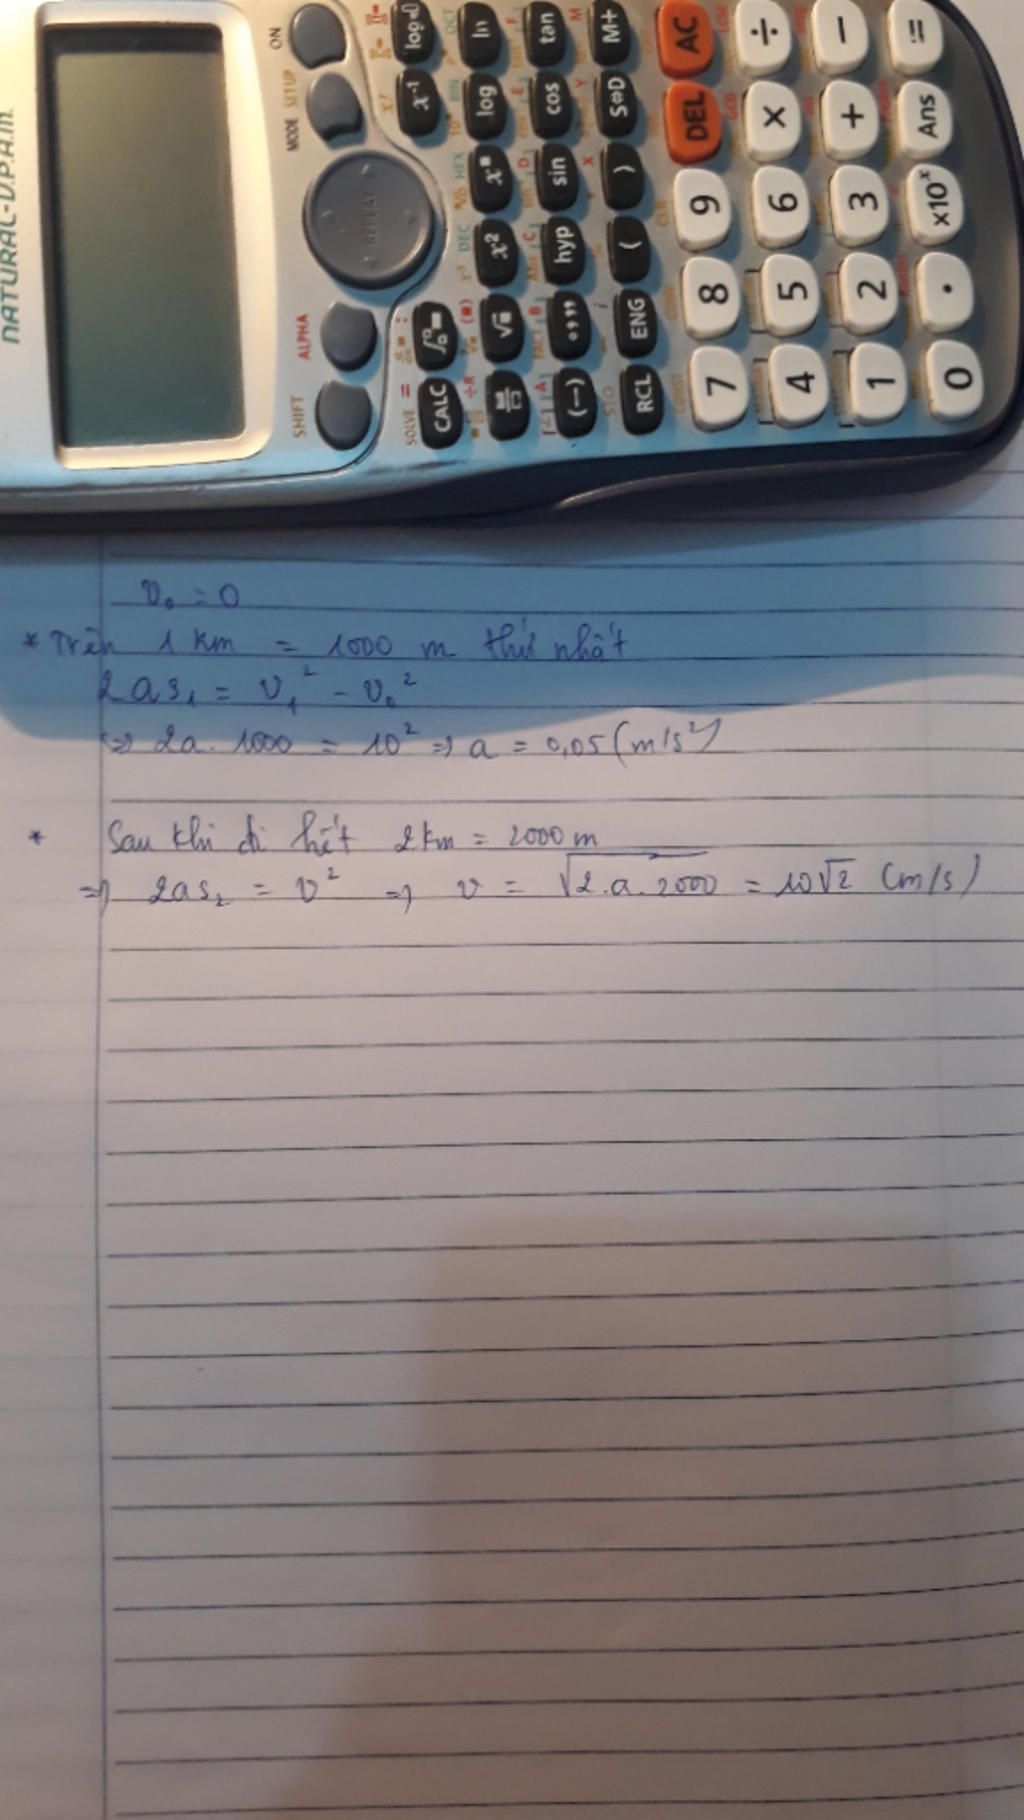 NATURAL-V.P.A.M.
SHIFT ALPHA MODE SETUP ON
SOLVE =
CALC x⁻¹
x² log ln
(−) hyp sin cos tan
RCL ENG ( ) S⇔D M+
7 8 9 DEL AC
4 5 6 × ÷
1 2 3 + −
0 . ×10ˣ Ans =
v₀ = 0
* Trên 1 km = 1000 m thứ nhất
2as₁ = v₁² - v₀²
=> 2a. 1000 = 10² => a = 0,05 (m/s²)
* Sau khi đi hết 2km = 2000 m
=> 2as₂ = v² => v = √2.a.2000 = 10√2 (m/s)